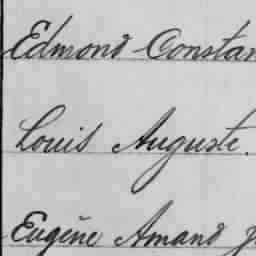 Edmond Constan
Louis Auguste.
Eugène Amand J